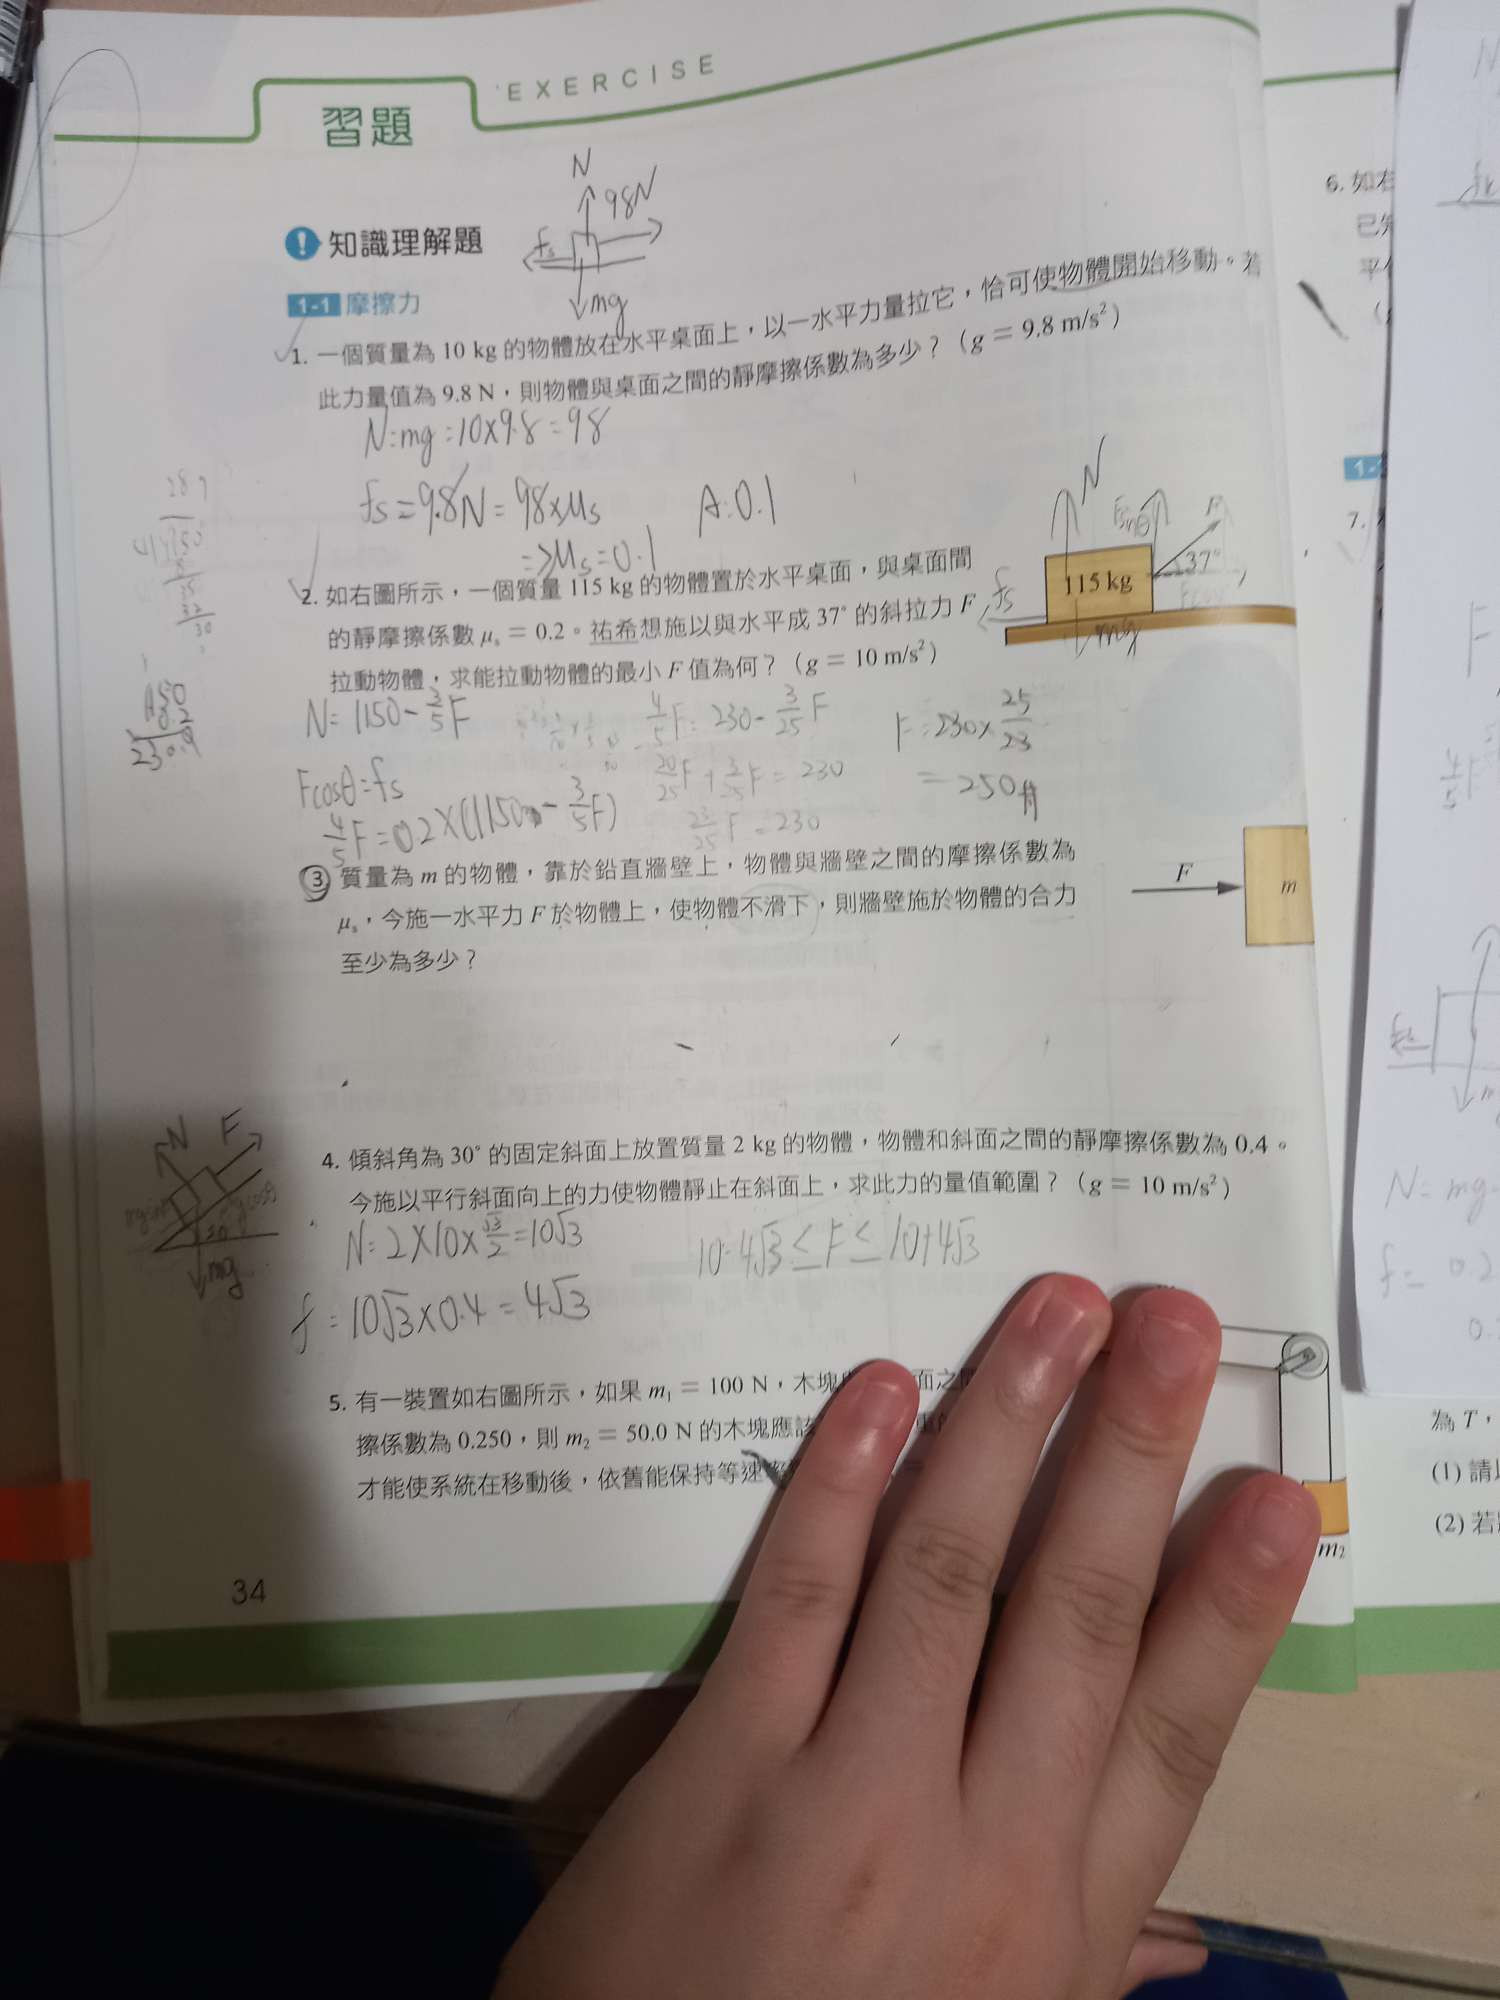 EXERCISE
習題
N
98N
fs
mg
! 知識理解題
1-1 摩擦力
1. 一個質量為 10 kg 的物體放在水平桌面上，以一水平力量拉它，恰可使物體開始移動。若
此力量值為 9.8 N，則物體與桌面之間的靜摩擦係數為多少？（g = 9.8 m/s²）
N=mg=10×9.8=98
fs=9.8N=98×μs A:0.1
=>μs=0.1
2. 如右圖所示，一個質量 115 kg 的物體置於水平桌面，與桌面間
的靜摩擦係數 μs = 0.2。祐希想施以與水平成 37° 的斜拉力 F
拉動物體，求能拉動物體的最小 F 值為何？（g = 10 m/s²）
N
F
37°
115 kg
fs
mg
N=1150-3/5F
4/5F=230-3/25F
F=230×25/23
Fcosθ=fs
20/25F+3/25F=230
=250
4/5F=0.2×(1150-3/5F)
23/25F=230
230
③ 質量為 m 的物體，靠於鉛直牆壁上，物體與牆壁之間的摩擦係數為
μs，今施一水平力 F 於物體上，使物體不滑下，則牆壁施於物體的合力
至少為多少？
F
m
N F
mg
4. 傾斜角為 30° 的固定斜面上放置質量 2 kg 的物體，物體和斜面之間的靜摩擦係數為 0.4。
今施以平行斜面向上的力使物體靜止在斜面上，求此力的量值範圍？（g = 10 m/s²）
N=2×10×√3/2=10√3
10-4√3≤F≤10+4√3
f=10√3×0.4=4√3
5. 有一裝置如右圖所示，如果 m₁ = 100 N，木塊
擦係數為 0.250，則 m₂ = 50.0 N 的木塊應該
才能使系統在移動後，依舊能保持等速
m₂
34
6. 如右
7.
N=mg
f=0.2
為 T，
(1) 請
(2) 若